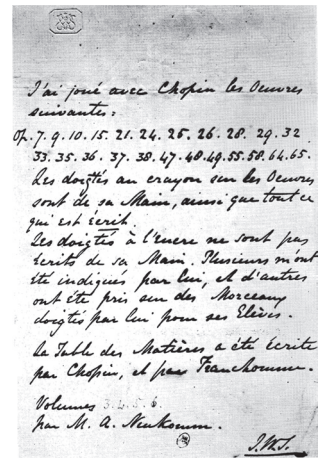 J'ai joué avec Chopin les Oeuvres
suivantes :
Op. 7. 9. 10. 15. 21. 24. 25. 26. 28. 29. 32
33. 35. 36. 37. 38. 47. 48. 49. 55. 58. 64. 65.
Les doigtés au crayon sur les Oeuvres
sont de sa Main, ainsi que tout ce
qui est écrit.
Les doigtés à l'encre ne sont pas
écrits de sa Main. Plusieurs m'ont
été indiqués par lui, et d'autres
ont été pris sur des Morceaux
doigtés par lui pour ses Elèves.
La Table des Matières a été écrite
par Chopin, et par Franchomme.
Volumes 3. 4. 5. 6.
par M. A. Neukomm.
J.W.S.